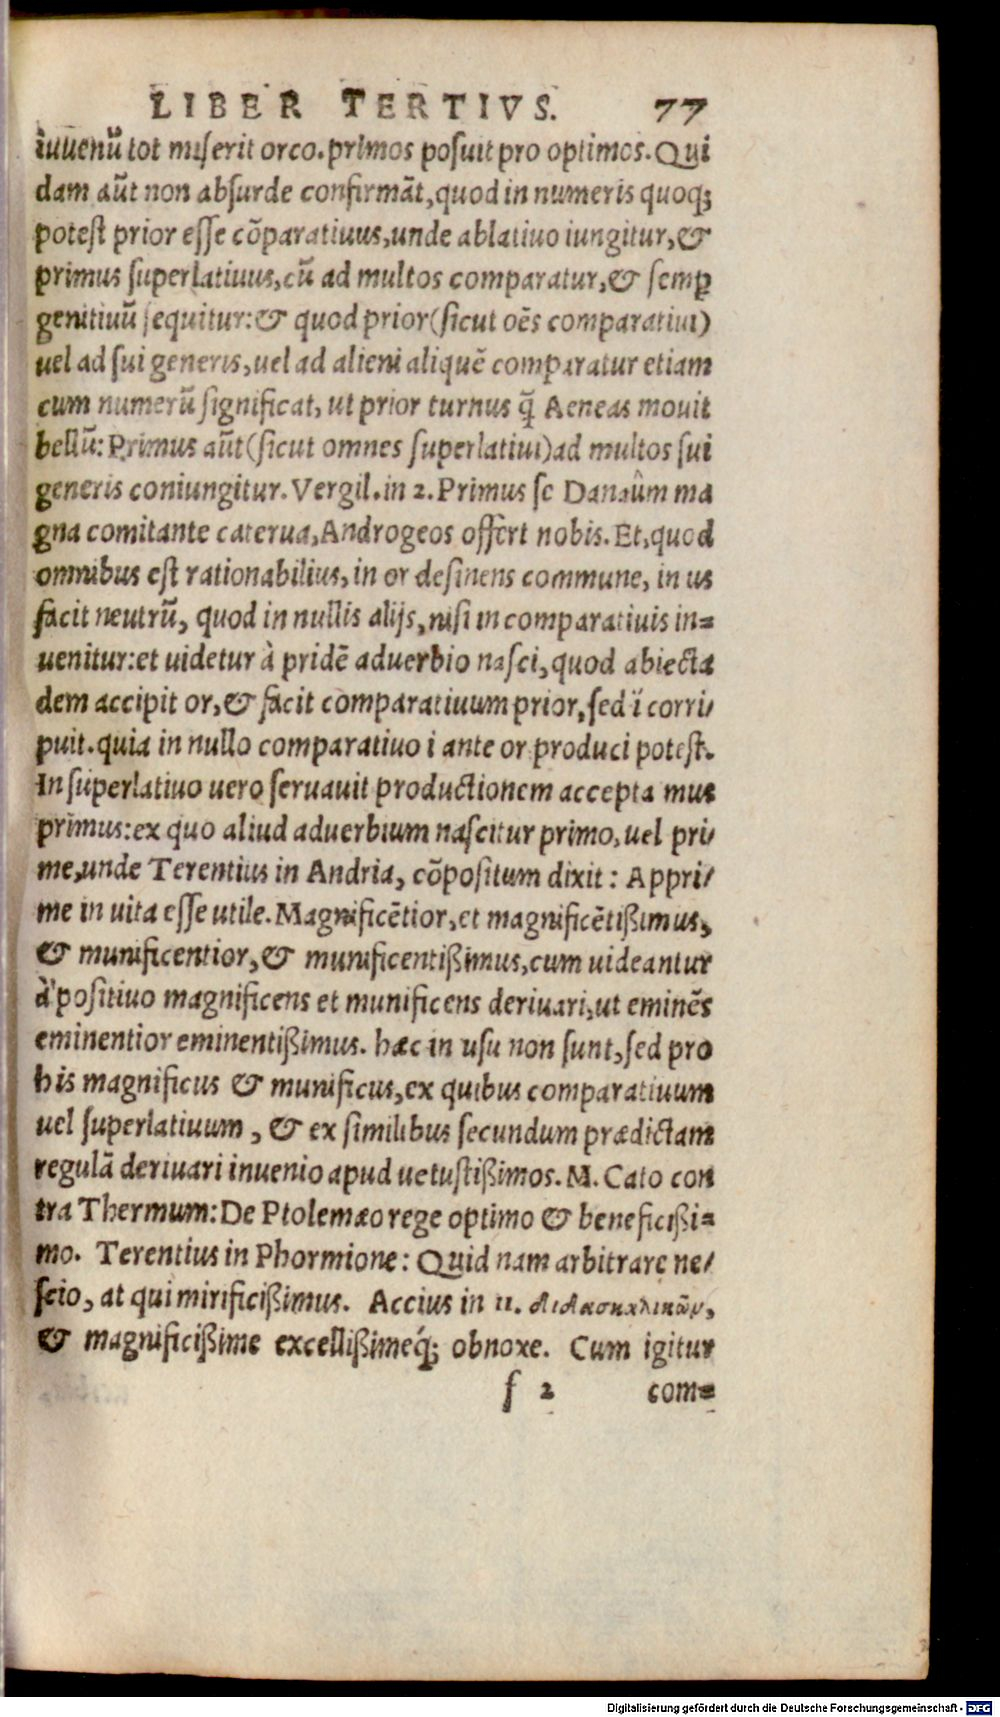 LIBER TERTIVS. 77
iuuenũ tot miserit orco. primos posuit pro optimos. Qui
dam aũt non absurde confirmãt, quod in numeris quoq;
potest prior esse cõparatiuus, unde ablatiuo iungitur, &
primus superlatiuus, cũ ad multos comparatur, & semꝑ
genitiuũ sequitur: & quod prior (sicut oẽs comparatiui)
uel ad sui generis, uel ad alieni aliquẽ comparatur etiam
cum numerũ significat, ut prior turnus q̃ Aeneas mouit
bellũ: Primus aũt (sicut omnes superlatiui) ad multos sui
generis coniungitur. Vergil. in 2. Primus se Danaûm ma
gna comitante caterua, Androgeos offert nobis. Et, quod
omnibus est rationabilius, in or desinens commune, in us
facit neutrũ, quod in nullis alijs, nisi in comparatiuis in=
uenitur: et uidetur à pridẽ aduerbio nasci, quod abiecta
dem accipit or, & facit comparatiuum prior, sed i corri/
puit. quia in nullo comparatiuo i ante or produci potest.
In superlatiuo uero seruauit productionem accepta mus
primus: ex quo aliud aduerbium nascitur primo, uel pri/
me, unde Terentius in Andria, cõpositum dixit: Appri/
me in uita esse utile. Magnificẽtior, et magnificẽtißimus,
& munificentior, & munificentißimus, cum uideantur
à positiuo magnificens et munificens deriuari, ut eminẽs
eminentior eminentißimus. hæc in usu non sunt, sed pro
his magnificus & munificus, ex quibus comparatiuum
uel superlatiuum, & ex similibus secundum prædictam
regulã deriuari inuenio apud uetustißimos. M. Cato con
tra Thermum: De Ptolemæo rege optimo & beneficißi=
mo. Terentius in Phormione: Quid nam arbitrare ne/
scio, at qui mirificißimus. Accius in 11. διδασκαλικῶν,
& magnificißime excellißimeq́; obnoxe. Cum igitur
f 2 com=
Digitalisierung gefördert durch die Deutsche Forschungsgemeinschaft - DFG